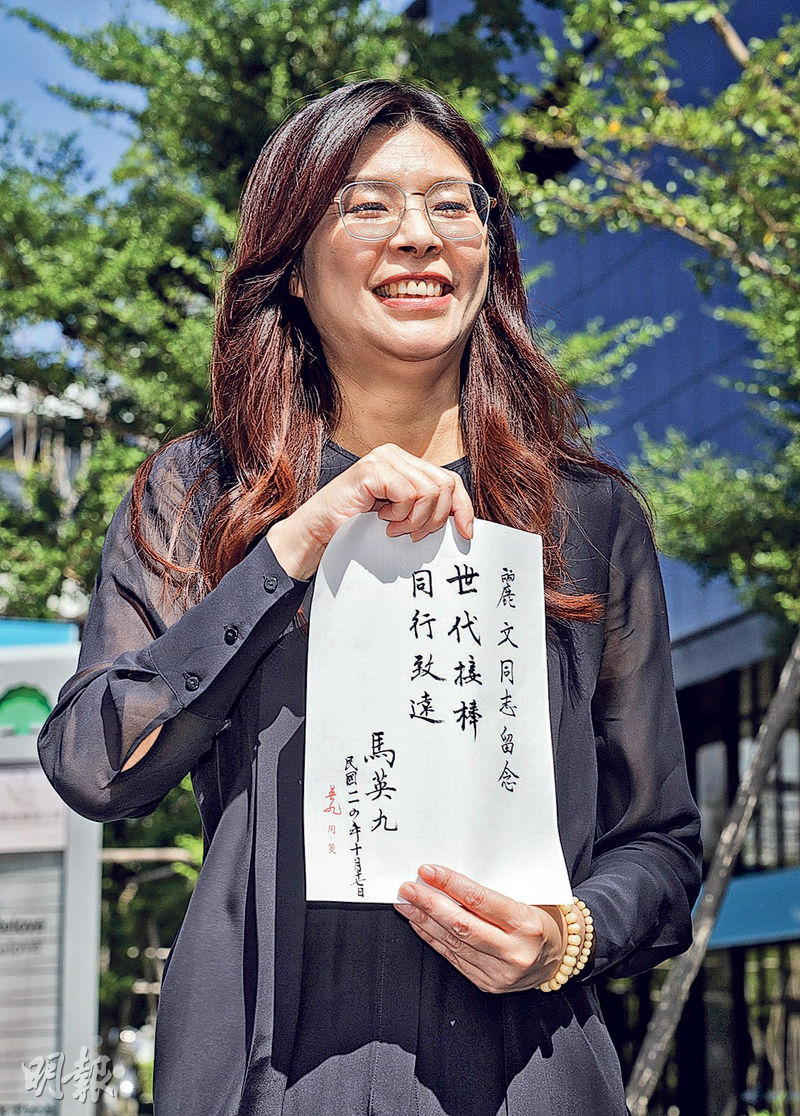 麗文同志留念
世代接棒
同行致遠
馬英九
民國一一四年十月十七日
英九用箋
明報